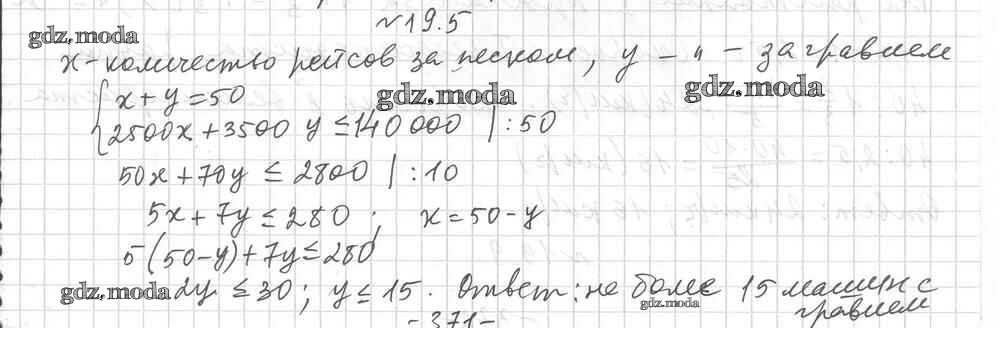 №19.5
gdz.moda
x - количество рейсов за песком, y - " - за гравием
x + y = 50
gdz.moda
gdz.moda
2500x + 3500 y ≤ 140 000 | : 50
50x + 70y ≤ 2800 | : 10
5x + 7y ≤ 280 ; x = 50 - y
5(50-y) + 7y ≤ 280
gdz.moda 2y ≤ 30 ; y ≤ 15. Ответ: не более 15 машин с
gdz.moda
гравием
- 371 -